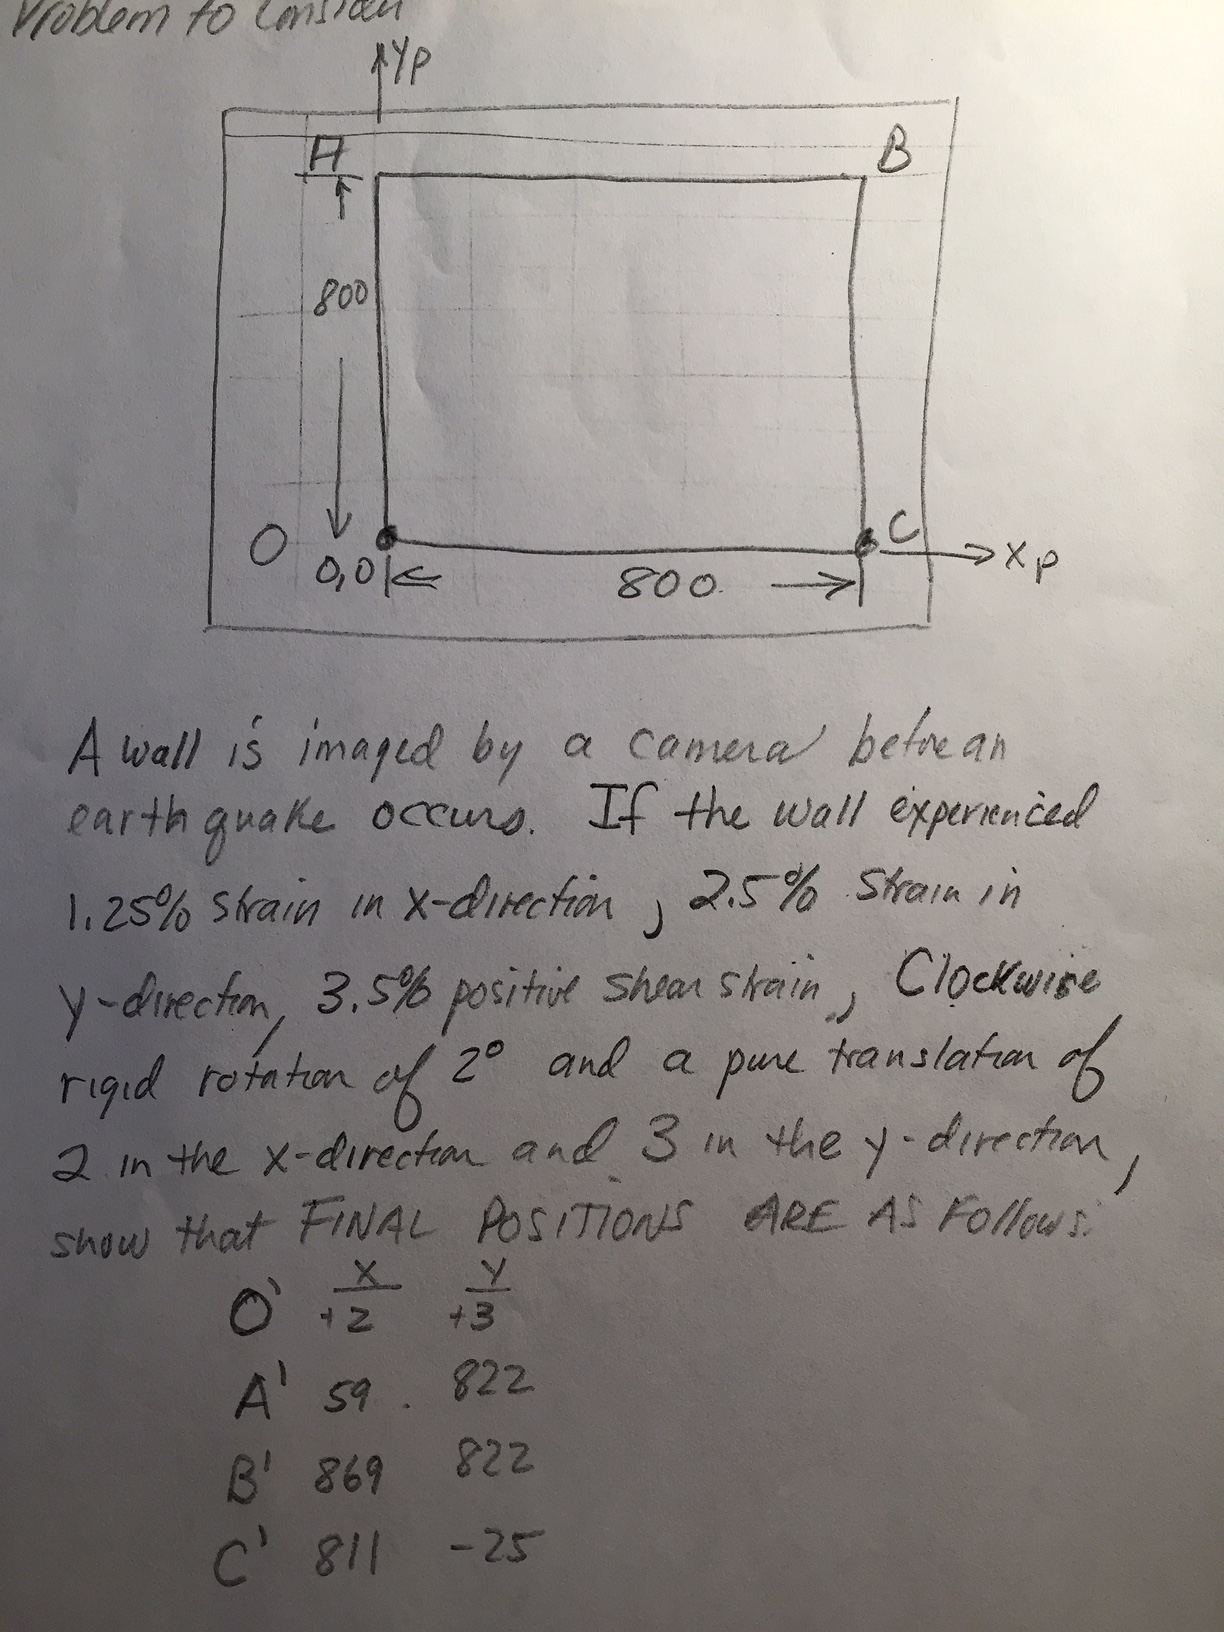 Problem to Consider
YP
A
B
800
O
C
0,0
800
XP
A wall is imaged by a camera before an
earthquake occurs. If the wall experienced
1.25% strain in x-direction, 2.5% strain in
y-direction, 3.5% positive shear strain, Clockwise
rigid rotation of 2° and a pure translation of
2 in the x-direction and 3 in the y-direction,
show that FINAL POSITIONS ARE AS Follows:
X Y
O' +2 +3
A' 59. 822
B' 869 822
C' 811 -25